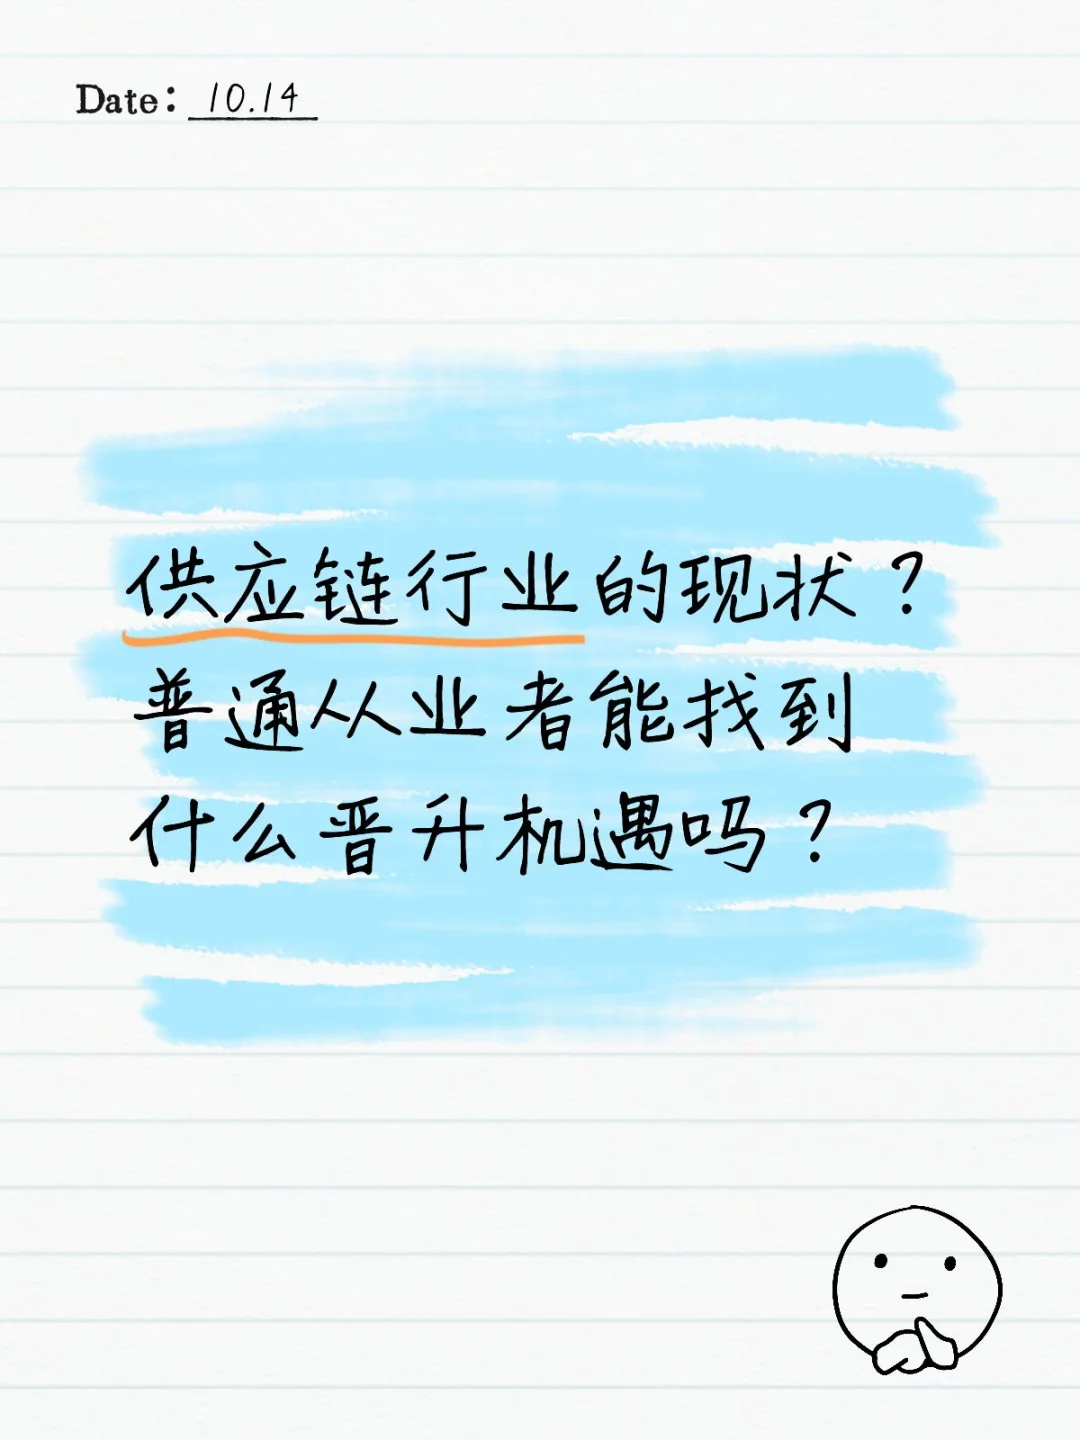 Date: 10.14
供应链行业的现状？
普通从业者能找到
什么晋升机遇吗？